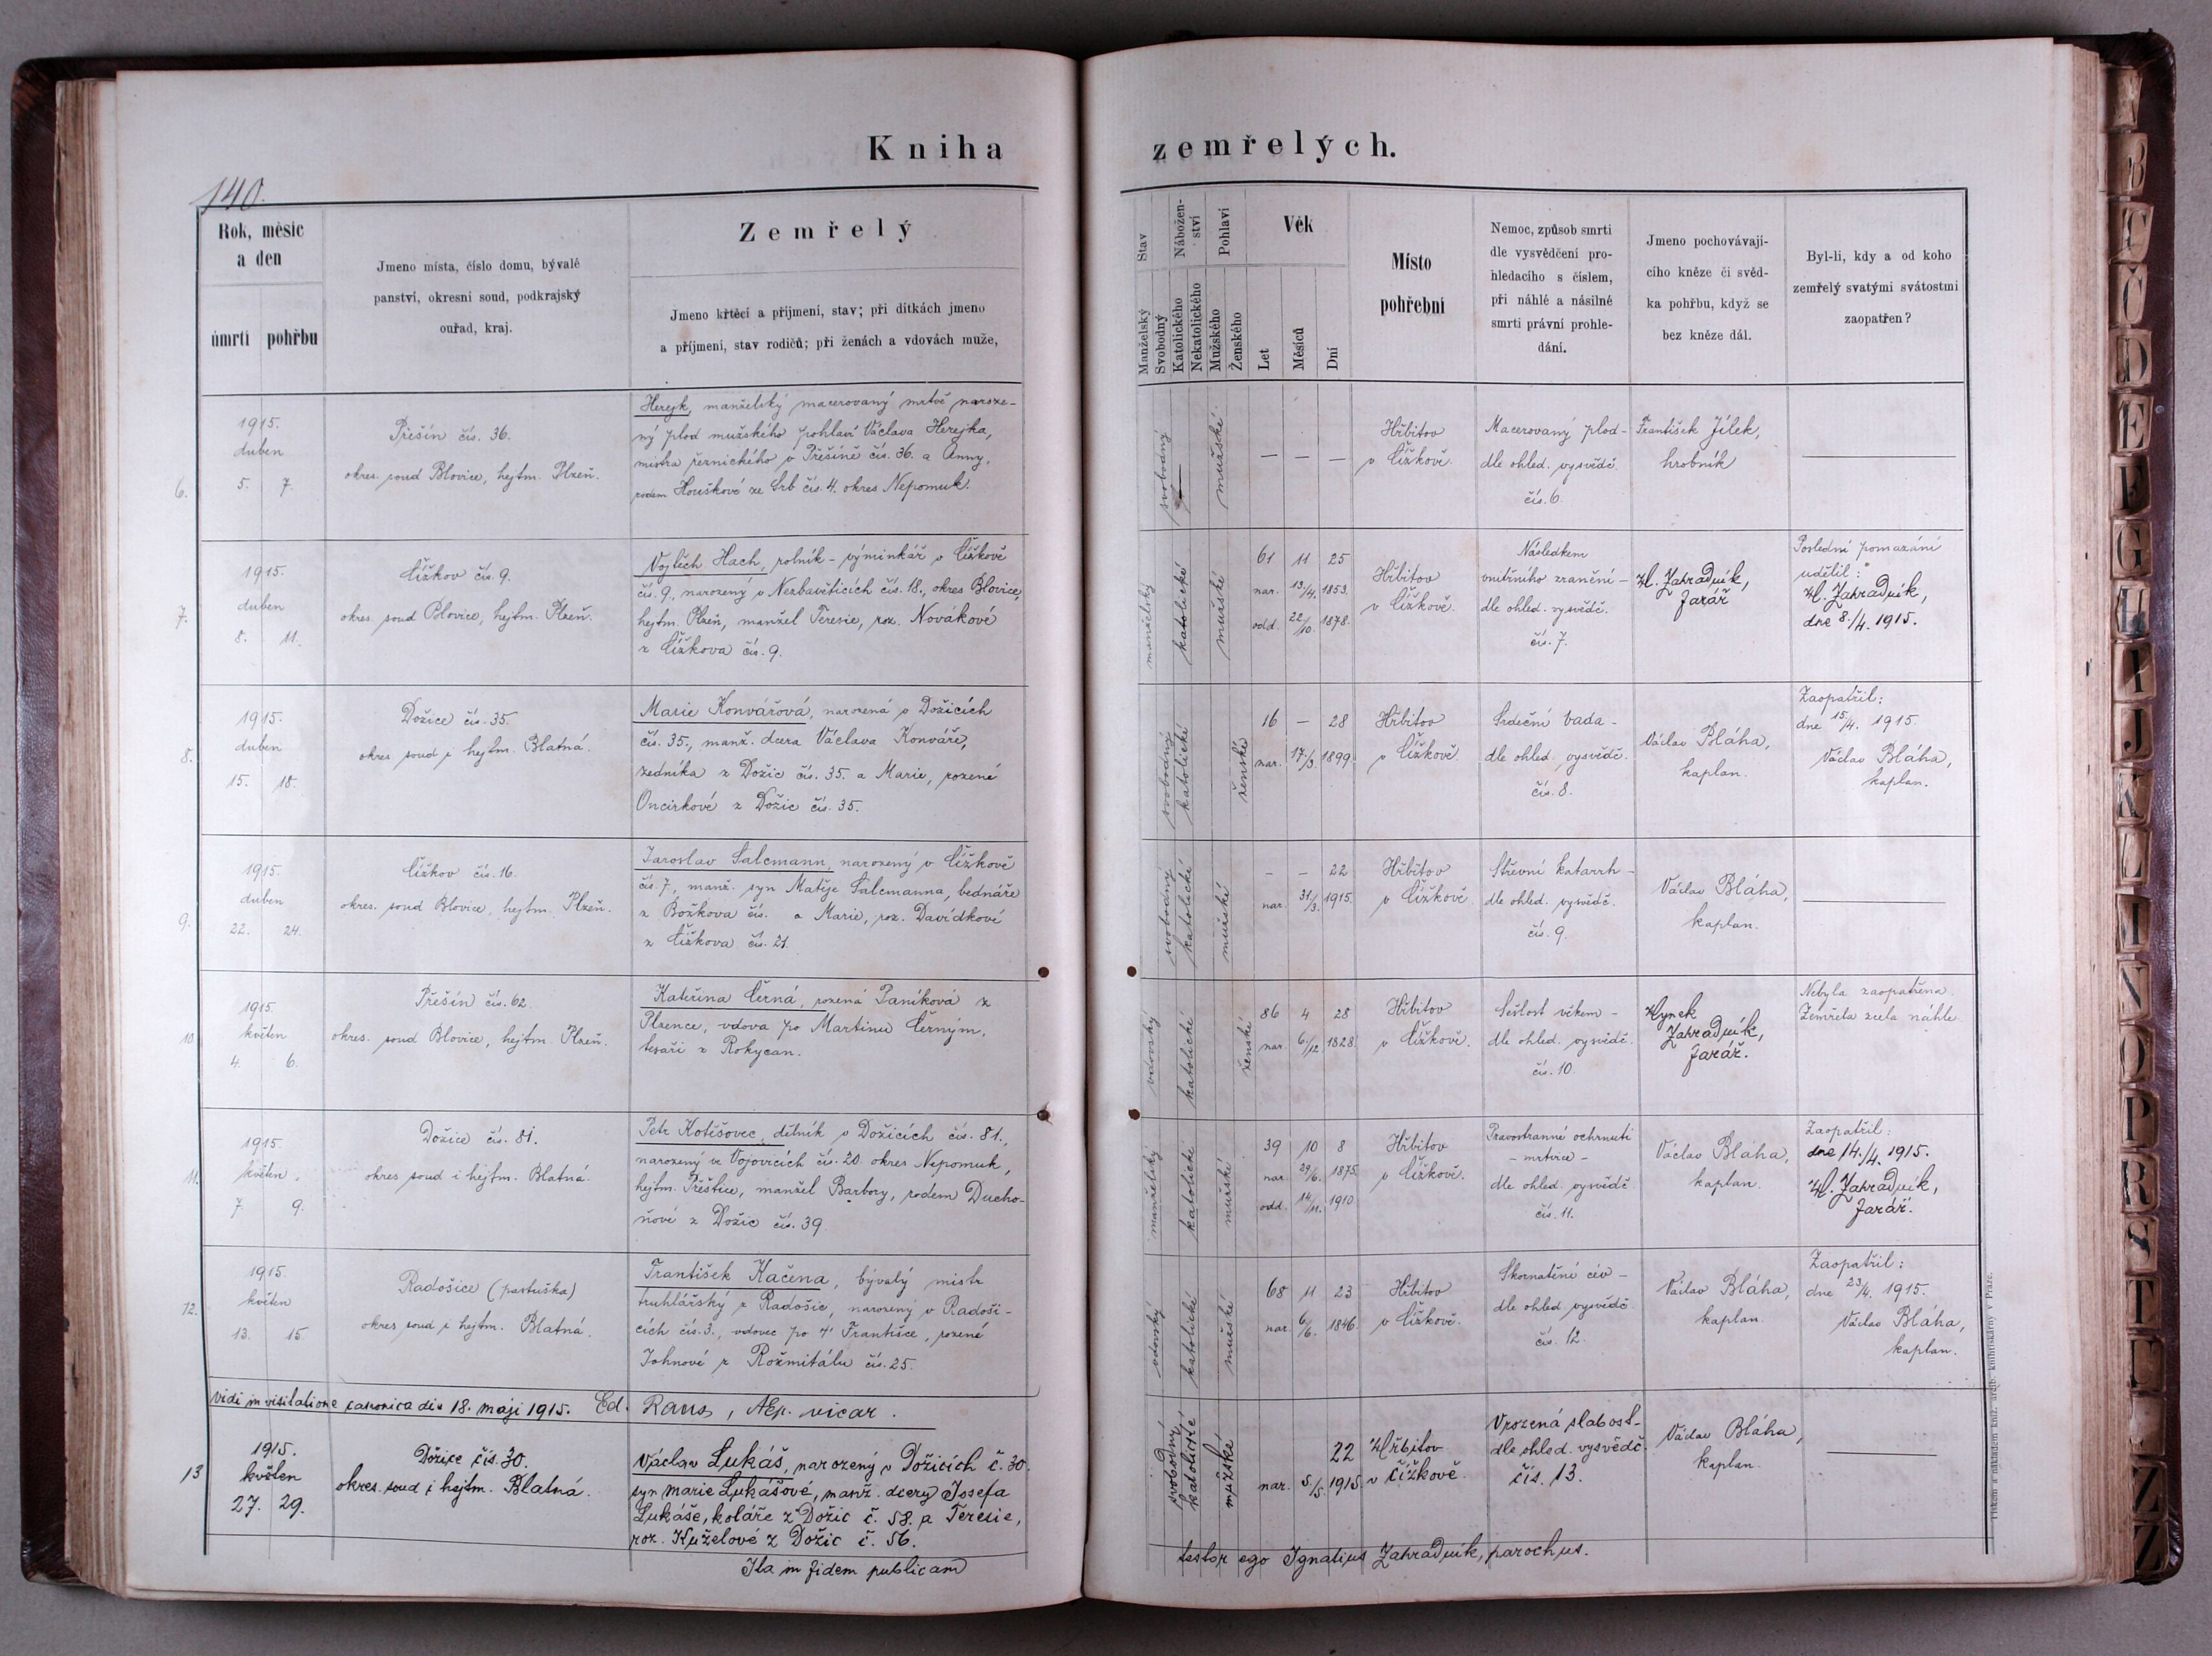 Kniha zemřelých.
140.
Rok, měsíc
a den
úmrtí pohřbu
Jmeno místa, číslo domu, bývalé
panství, okresní soud, podkrajský
ouřad, kraj.
Zemřelý
Jmeno křtěcí a příjmení, stav; při dítkách jmeno
a příjmení, stav rodičů; při ženách a vdovách muže,
Stav
Manželský
Svobodný
Nábožen-
ství
Katolického
Nekatolického
Pohlaví
Mužského
Ženského
Věk
Let
Měsíců
Dní
Místo
pohřební
Nemoc, způsob smrti
dle vysvědčení pro-
hledacího s číslem,
při náhlé a násilné
smrti právní prohle-
dání.
Jmeno pochovávají-
cího kněze či svěd-
ka pohřbu, když se
bez kněze dál.
Byl-li, kdy a od koho
zemřelý svatými svátostmi
zaopatřen?
6.
1915.
duben
5. 7.
Přešín čís. 36.
okres. soud Blovice, hejtm. Plzeň.
Herejk, manželský macerovaný mrtvě naroze-
ný plod mužského pohlaví Václava Herejka,
mistra řeznického v Přešíně čís. 36. a Anny,
rodem Houškové ze Srb čís. 4. okres Nepomuk.
svobodný
mužské
— — —
Hřbitov
v Čížkově.
Macerovaný plod-
dle ohled. vysvědč.
čís. 6.
František Jílek,
hrobník
7.
1915.
duben
8. 11.
Čížkov čís. 9.
okres. soud Blovice, hejtm. Plzeň.
Vojtěch Hach, rolník - výminkář v Čížkově
čís. 9., narozený v Nezbavěticích čís. 18., okres Blovice,
hejtm. Plzeň, manžel Teresie, roz. Novákové
z Čížkova čís. 9.
manželský
katolické
mužské
61 11 25
nar. 13./4. 1853.
odd. 22/10. 1878.
Hřbitov
v Čížkově.
Následkem
vnitřního zranění -
dle ohled. vysvědč.
čís. 7.
H. Zahradník,
farář
Poslední pomazání
udělil:
H. Zahradník,
dne 8./4. 1915.
8.
1915.
duben
15. 18.
Dožice čís. 35.
okres. soud i hejtm. Blatná.
Marie Konvářová, narozená v Dožicích
čís. 35., manž. dcera Václava Konváře,
zedníka z Dožic čís. 35. a Marie, rozené
Oncirkové z Dožic čís. 35.
svobodný
katolické
ženské
16 — 28
nar. 17./3. 1899.
Hřbitov
v Čížkově.
Srdeční vada -
dle ohled. vysvědč.
čís. 8.
Václav Bláha,
kaplan.
Zaopatřil:
dne 15/4. 1915.
Václav Bláha,
kaplan.
9.
1915.
duben
22. 24.
Čížkov čís. 16.
okres. soud Blovice, hejtm. Plzeň.
Jaroslav Salcmann, narozený v Čížkově
čís. 7., manž. syn Matěje Salcmanna, bednáře
z Božkova čís. a Marie, roz. Davídkové
z Čížkova čís. 21.
svobodný
katolické
mužské
- - 22
nar. 31./3. 1915.
Hřbitov
v Čížkově.
Střevní katarrh -
dle ohled. vysvědč.
čís. 9.
Václav Bláha,
kaplan.
10.
1915.
květen
4. 6.
Přešín čís. 62.
okres. soud Blovice, hejtm. Plzeň.
Kateřina Černá, rozená Paníková z
Plzence, vdova po Martinu Černým,
tesaři z Rokycan.
vdovský
katolické
ženské
86 4 28
nar. 6./12. 1828.
Hřbitov
v Čížkově.
Sešlost věkem -
dle ohled. vysvědč.
čís. 10.
Hynek
Zahradník,
farář.
Nebyla zaopatřena.
Zemřela zcela náhle.
11.
1915.
květen
7. 9.
Dožice čís. 81.
okres soud i hejtm. Blatná.
Petr Kotěšovec, dělník v Dožicích čís. 81.,
narozený ve Vojovicích čís. 20. okres Nepomuk,
hejtm. Přeštice, manžel Barbory, rodem Ducho-
ňové z Dožic čís. 39.
manželský
katolické
mužské
39 10 8
nar. 29/6. 1875.
odd. 14/11. 1910.
Hřbitov
v Čížkově.
Pravostranné ochrnutí
- mrtvice -
dle ohled. vysvědč.
čís. 11.
Václav Bláha,
kaplan.
Zaopatřil:
dne 14./4. 1915.
H. Zahradník,
farář.
12.
1915.
květen
13. 15.
Radošice (pastuška)
okres soud i hejtm. Blatná.
František Kačena, bývalý mistr
truhlářský z Radošic, narozený v Radoši-
cích čís. 3., vdovec po † Františce, rozené
Johnové z Rožmitálu čís. 25.
vdovský
katolické
mužské
68 11 23
nar. 6/6. 1846.
Hřbitov
v Čížkově.
Skornatění cév -
dle ohled. vysvědč.
čís. 12.
Václav Bláha,
kaplan.
Zaopatřil:
dne 23/4. 1915.
Václav Bláha,
kaplan.
Vidi in visitatione canonica die 18. maji 1915. Ed. Raus, vicar.
13
1915.
květen
27. 29.
Dožice čís. 30.
okres. soud i hejtm. Blatná.
Václav Lukáš, narozený v Dožicích č. 30.
syn Marie Lukášové, manž. dcery Josefa
Lukáše, koláře z Dožic č. 58. a Teresie,
roz. Kuželové z Dožic č. 56.
svobodný
katolické
mužské
22
nar. 5./5. 1915.
Hřbitov
v Čížkově.
Vrozená slabost-
dle ohled. vysvědč.
čís. 13.
Václav Bláha,
kaplan.
Ita in fidem publicam testor ego Ignatius Zahradník, parochus.
Tiskem a nákladem kníž. arcib. knihtiskárny v Praze.
A
B
C
Č
D
E
F
G
H
I
J
K
L
M
N
O
P
R
S
T
U
Z
Ž